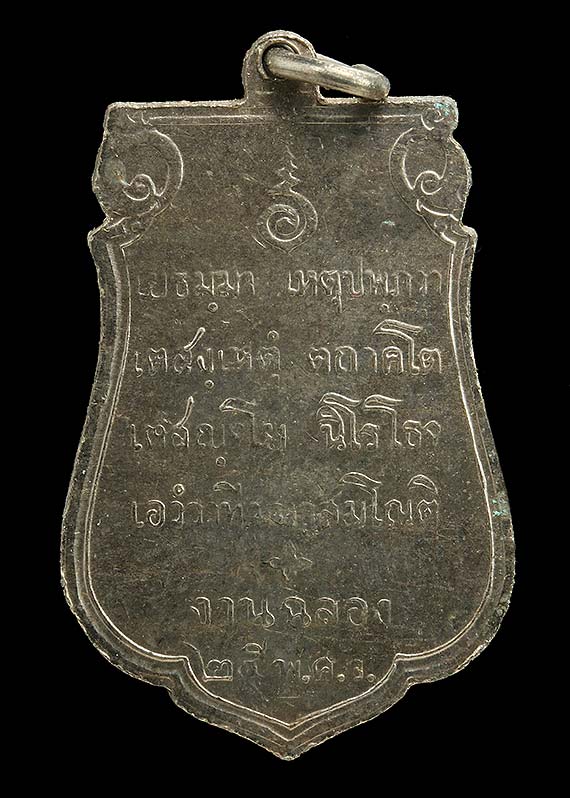 เยธมฺมา เหตุปพฺภวา
เตสงฺเหตุํ ตถาคโต
เตสญฺจโย นิโรโธจ
เอวํวาทีมหาสมโณติ
งานฉลอง
๒๕ พ.ศ.ว.